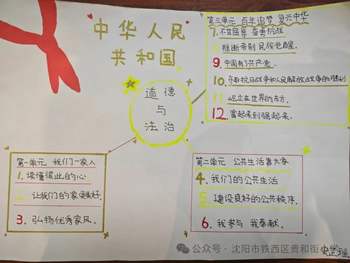 中华人民
共和国
道德
与
法治
第三单元 百年追梦 复兴中华
7.不甘屈辱 奋勇抗争
推翻帝制 民族觉醒
9.中国有了共产党
10.夺取抗日战争和人民解放战争的胜利
11.屹立在世界的东方
12.富起来到强起来
第一单元 我们一家人
1.读懂彼此的心
让我们的家更美好
3.弘扬优秀家风
第二单元 公共生活靠大家
4.我们的公共生活
5.建设良好的公共秩序
6.我参与 我奉献
公众号·沈阳市铁西区贵和街